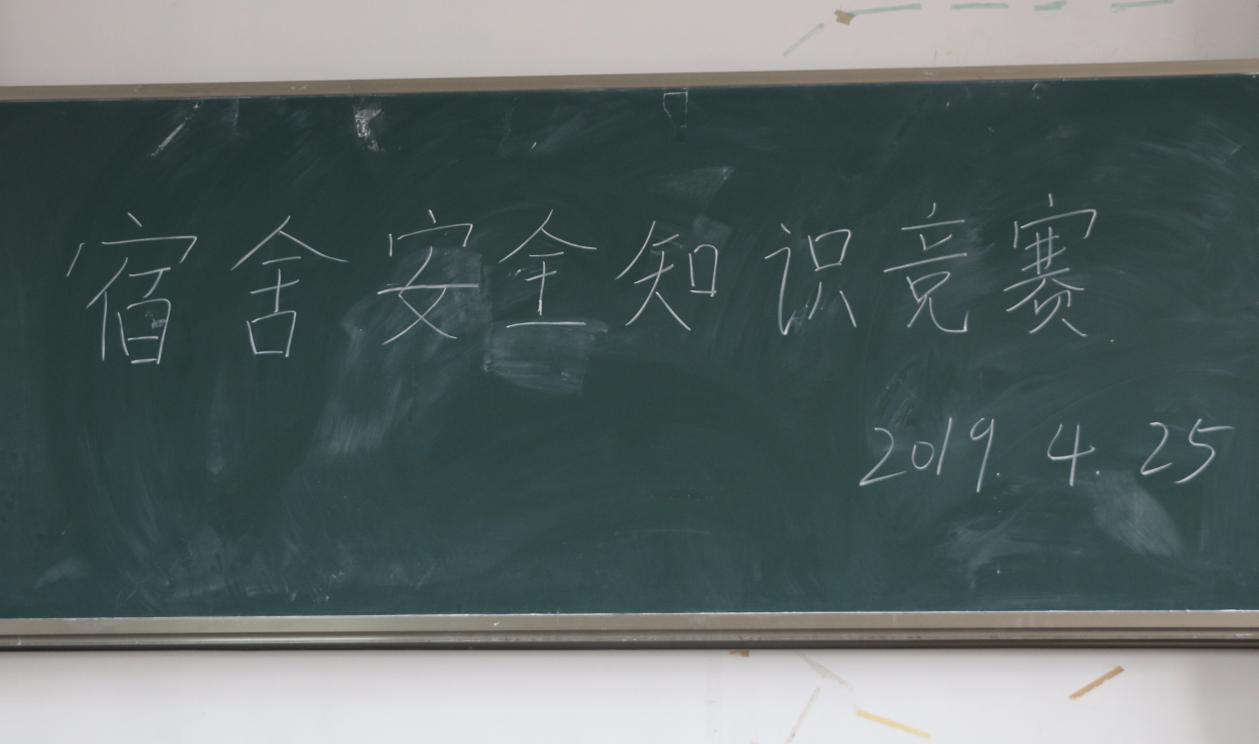 宿舍安全知识竞赛
2019.4.25